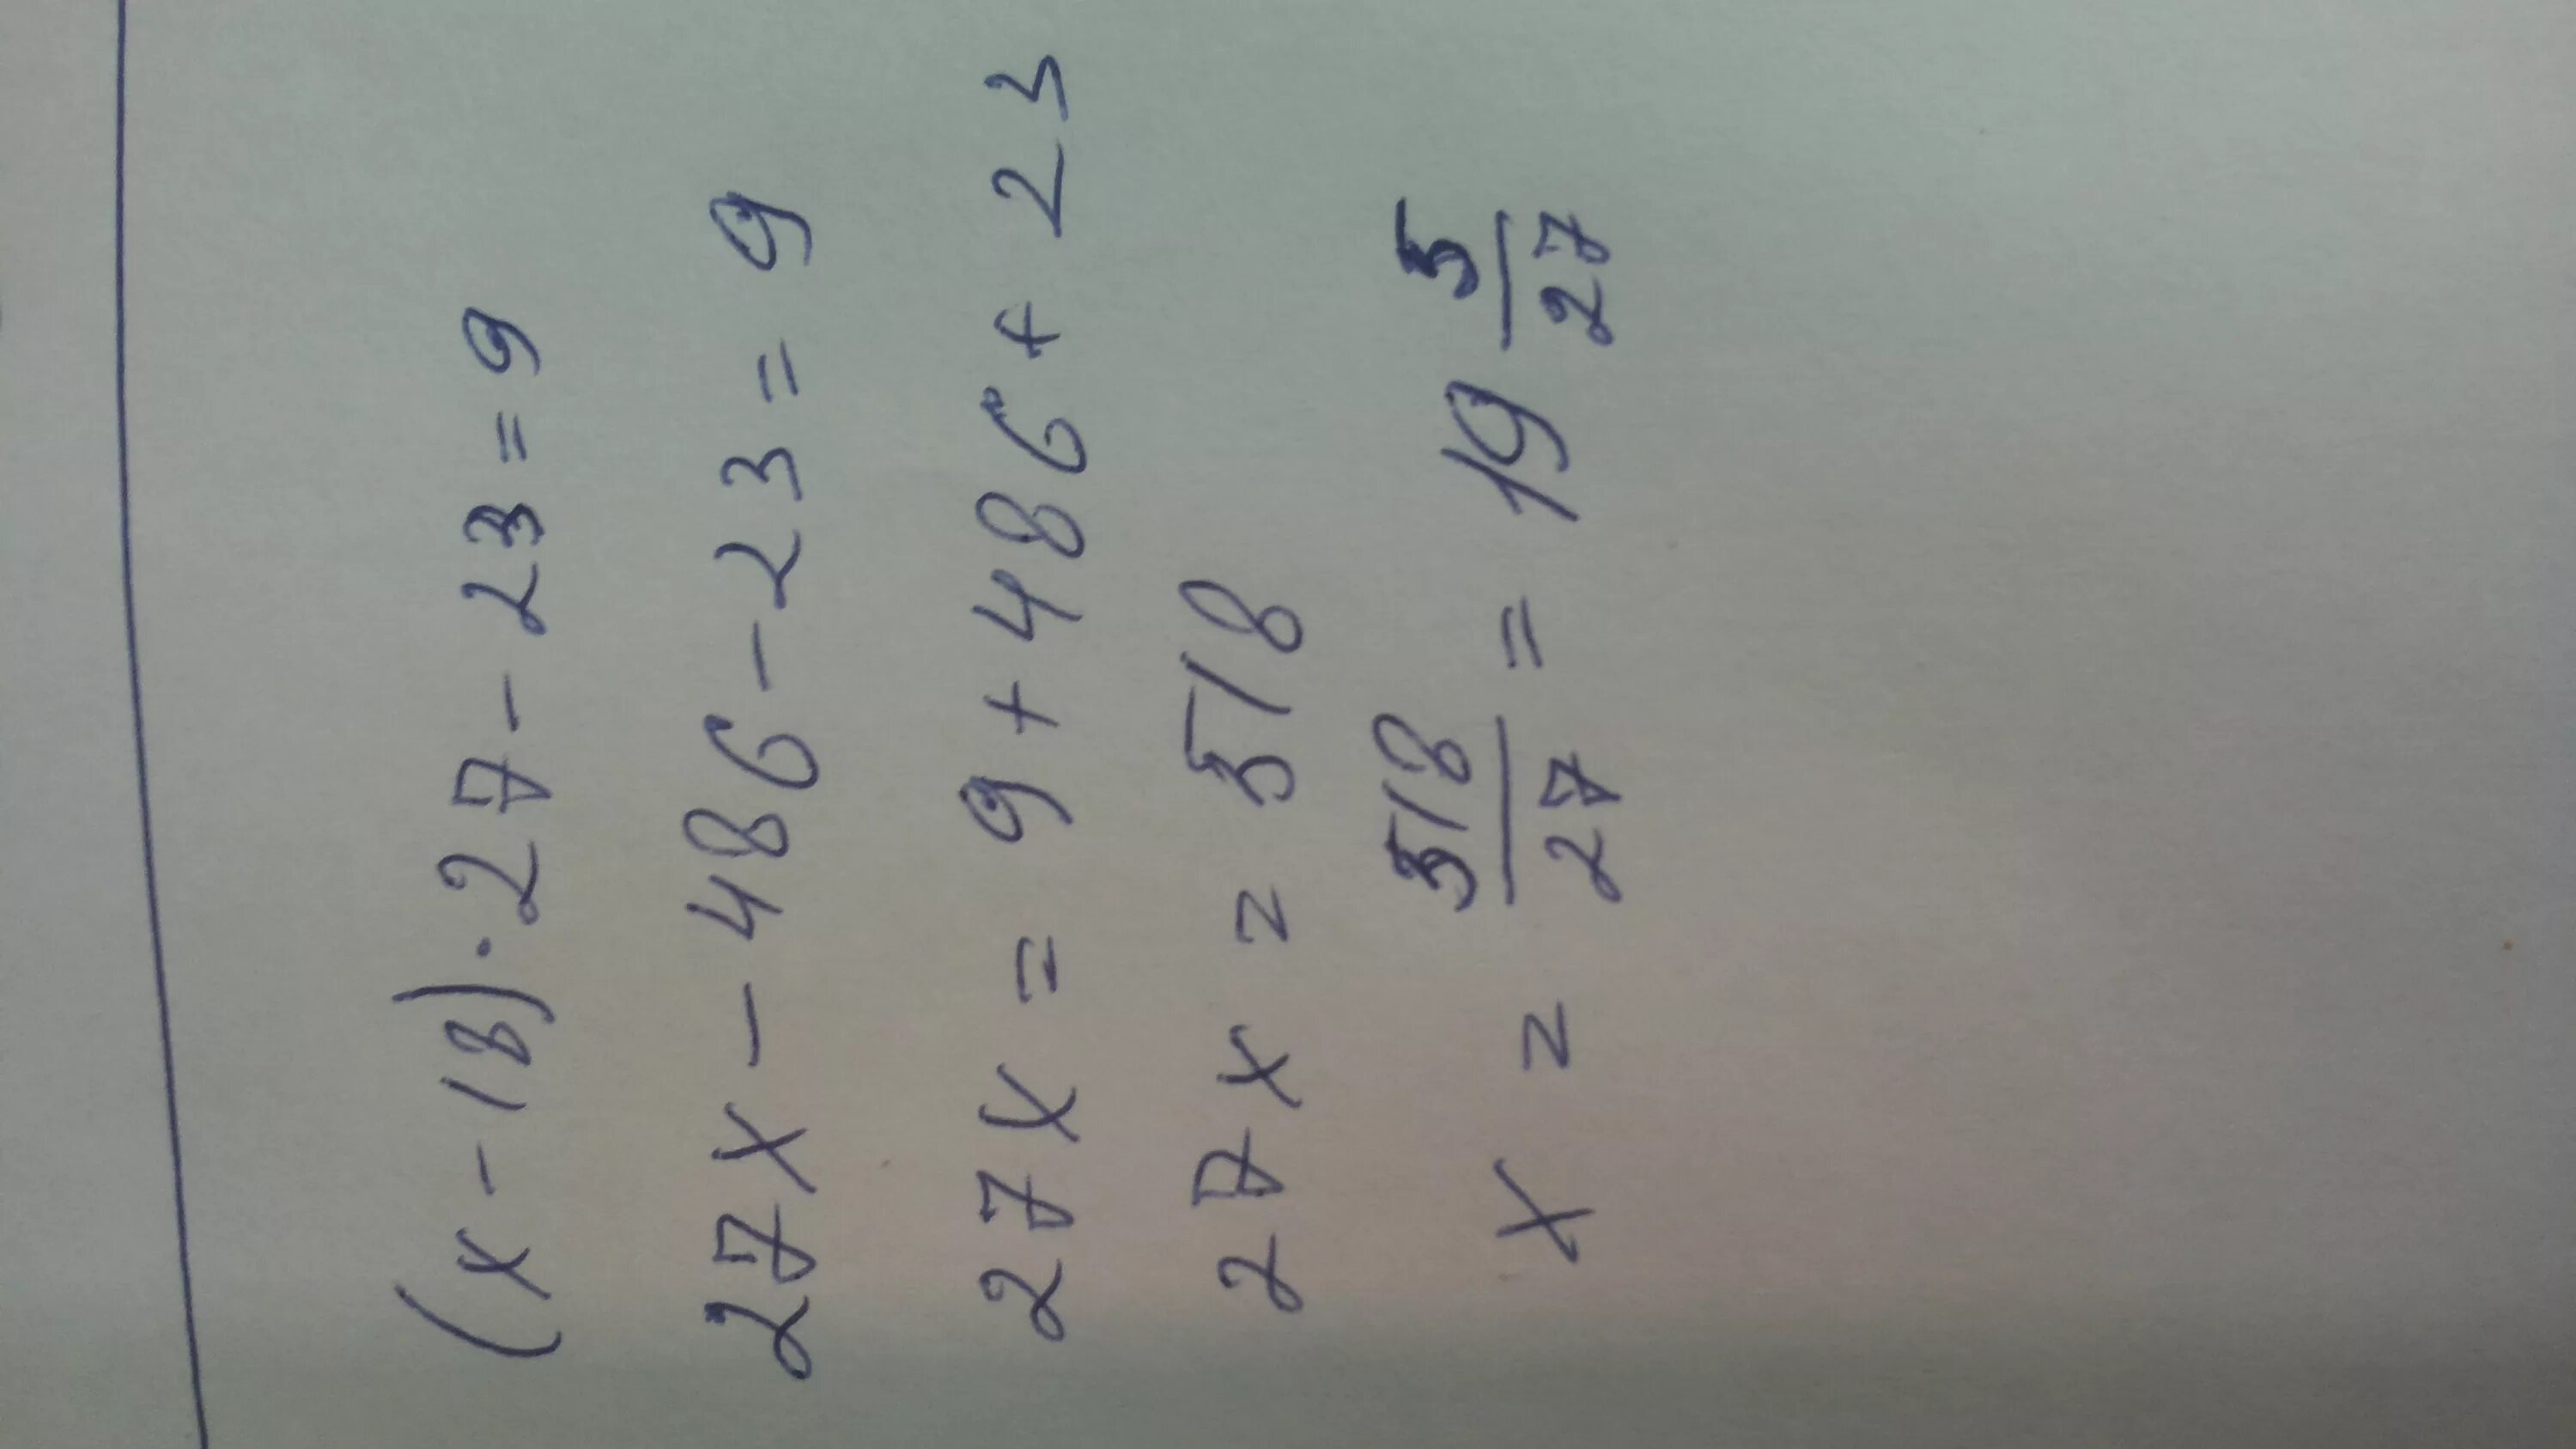 (x-18)·27-23=9
27x-486-23=9
27x=9+486+23
27x=518
x=518/27=19 5/27